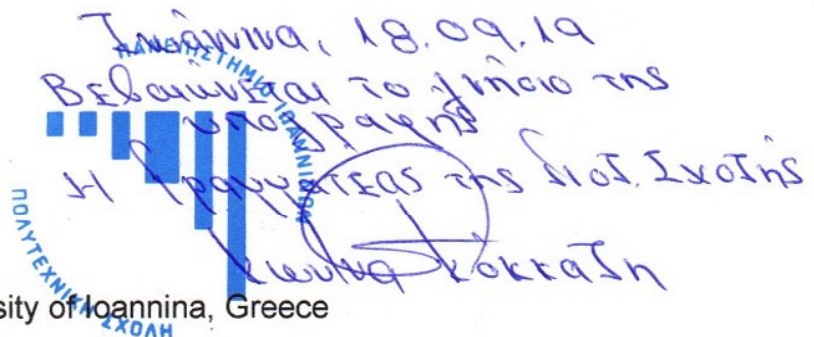 Ιωάννινα, 18.09.19
Βεβαιώνεται το γνήσιο της
υπογραφής
Η Γραμματέας της Σχολής
Κόκκαλη
ΠΑΝΕΠΙΣΤΗΜΙΟ ΙΩΑΝΝΙΝΩΝ
ΠΟΛΥΤΕΧΝΙΚΗ ΣΧΟΛΗ
sity of Ioannina, Greece